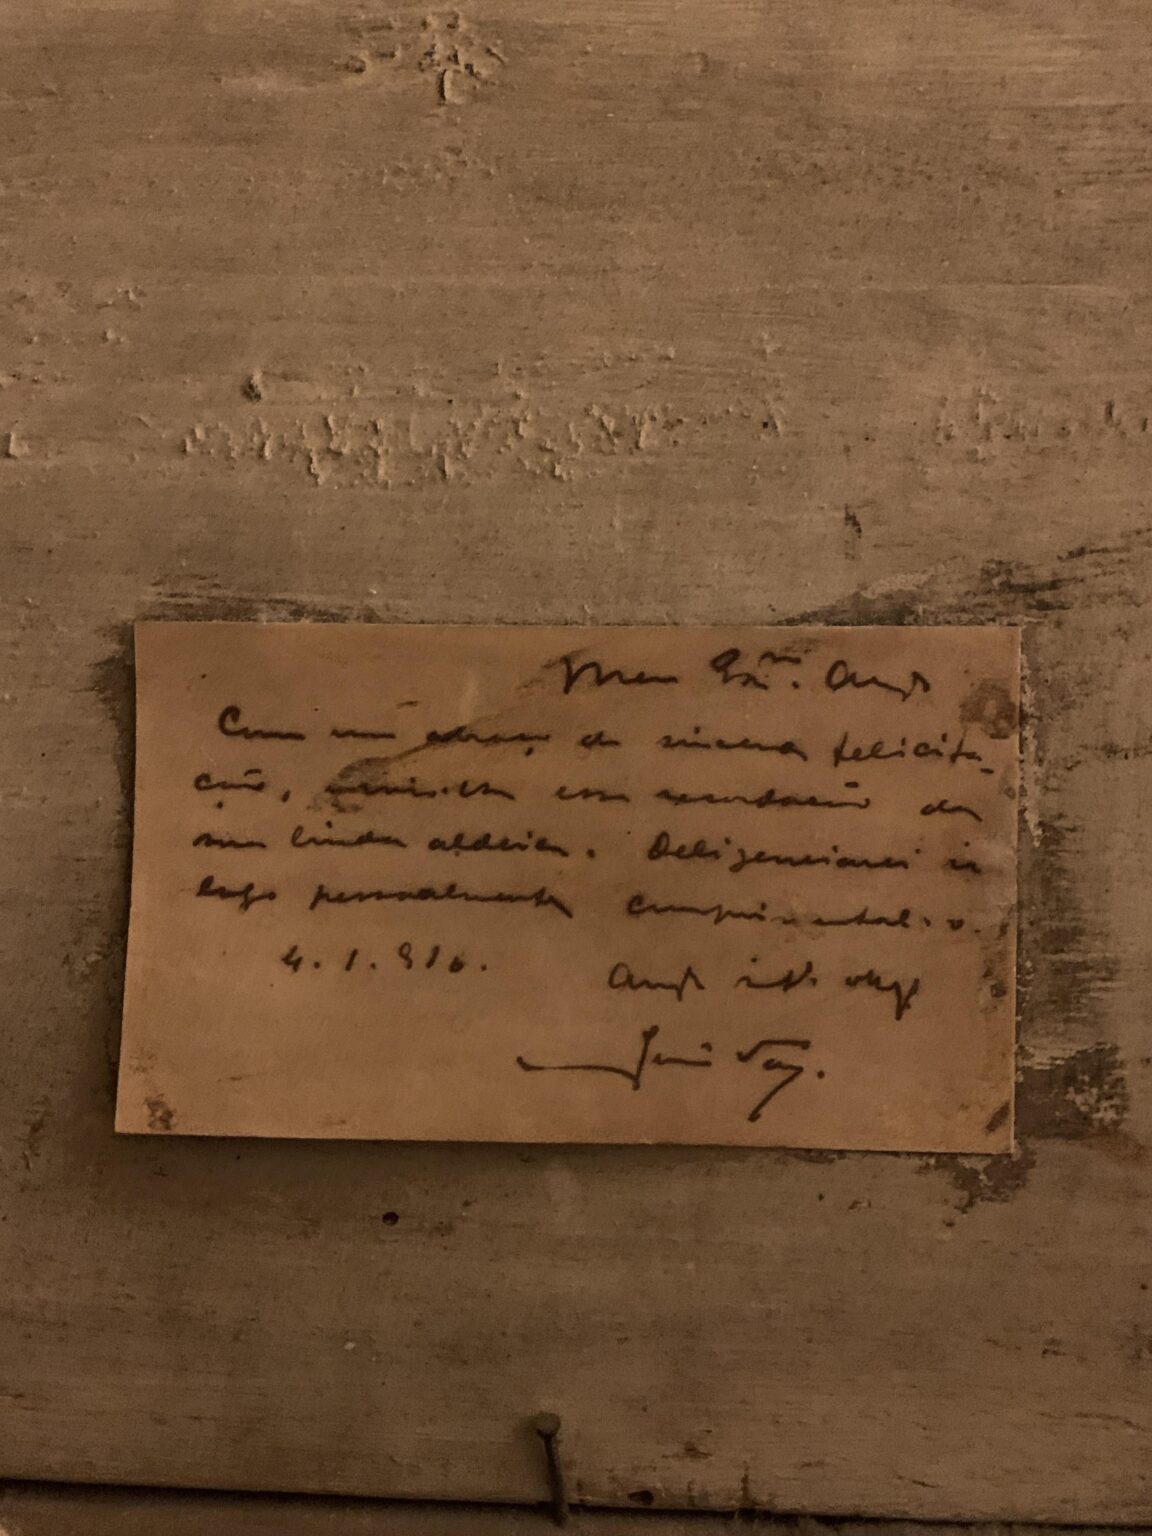 Meu Exmo. Amigo
Com um abraço de sincera felicita-
ção, envio-lhe essa recordação da
sua linda aldeia. Deligenciarei ir
logo pessoalmente cumprimental-o.
4.1.916.
Amigo obgo